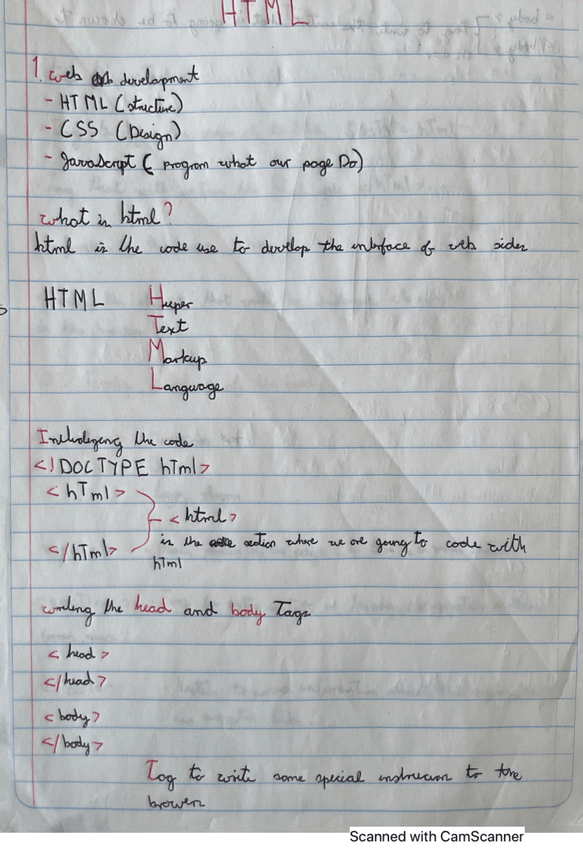 HTML
1. Web development
- HTML (structure)
- CSS (Design)
- JavaScript ( program what our page Do)
what is html?
html is the code use to develop the interface of web sides
HTML Hyper
Text
Markup
Language
the code
<!DOCTYPE hTml>
<hTml>
<html>
is the section where we are going to code with
</hTml>
hTml
writing the head and body Tags
<head>
</head>
<body>
</body>
Tag to write some special instrucion to the
brower
Scanned with CamScanner